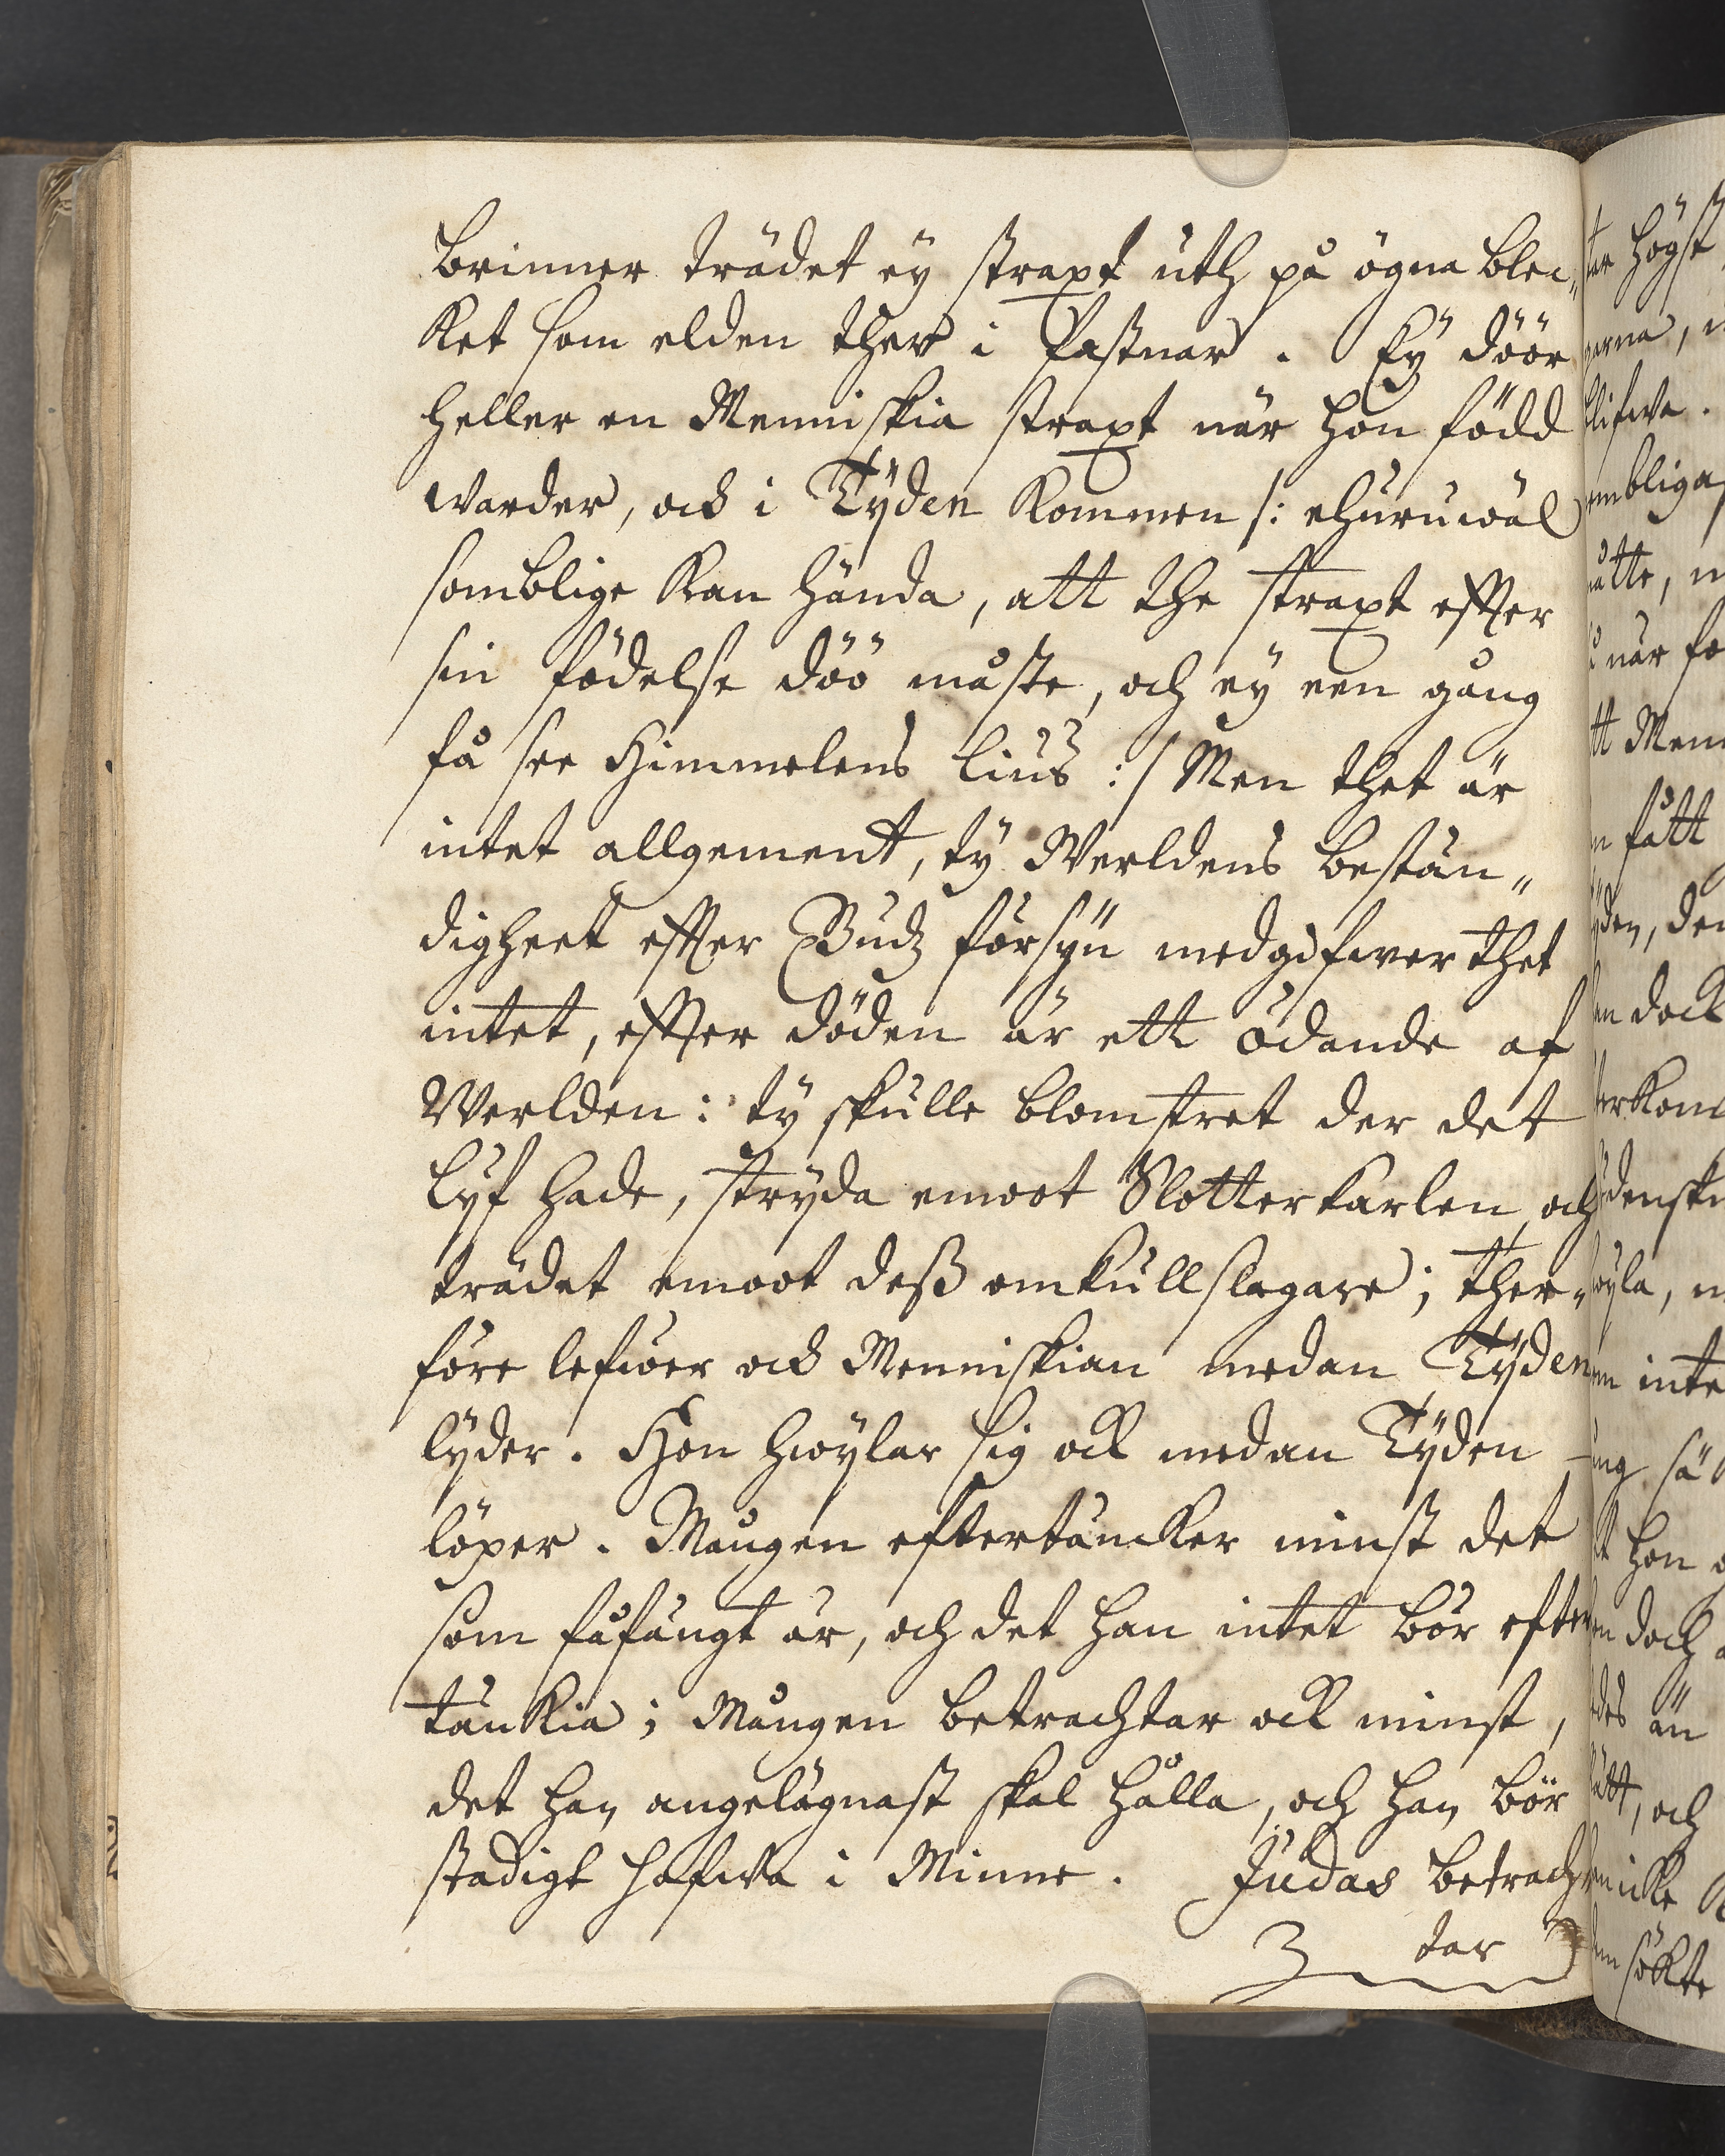 brinner trädet eÿ straxt uth på ögna blec„
ket som elden ther i fastnar. Eÿ döör
heller en Menniskia straxt när hon född
warder, och i Tÿden kommen /: ehuruwäl
somblige kan hända, att the straxt effter
sin födelse döö måste, och eÿ een gång
få see Himmelens lius :/ Men thet är
intet allgement, tÿ Werldens bestän„
digheet effter Gudz försÿn medgifwer thet
intet, effter döden är ett ödande af
Werlden: tÿ skulle blomstret der det
lÿf hade, strÿda emoot Slotterkarlen, och
trädet emoot deß omkullslagare; ther„
före lefwer och Menniskian medan Tÿden
lÿder. Hon hwÿlar sig ock medan Tÿden
löper. Mången eftertäncker minst det
som fåfängt är, och det han intet bör efter
tänkia; Mången betrachtar ock minst,
det han angelägnast skal hålla, och han bör
stadigt hafwa i Minne. Judas betrach
tar
tar högst
blifwa.
ombliga
åtte,
när
tt
fått
den,
dock
inte
sä
hon
doch
än
ått, och
icke
sökte